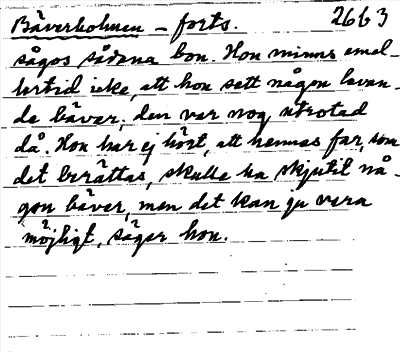 Bäverholmen – forts. 2663
sågos sådana bon. Hon minns emel-
lertid icke, att hon sett någon levan-
de bäver; den var nog utrotad
då. Hon har ej hört, att hennes far, som
det berättas, skulle ha skjutit nå-
gon bäver, men det kan ju vara
möjligt, säger hon.